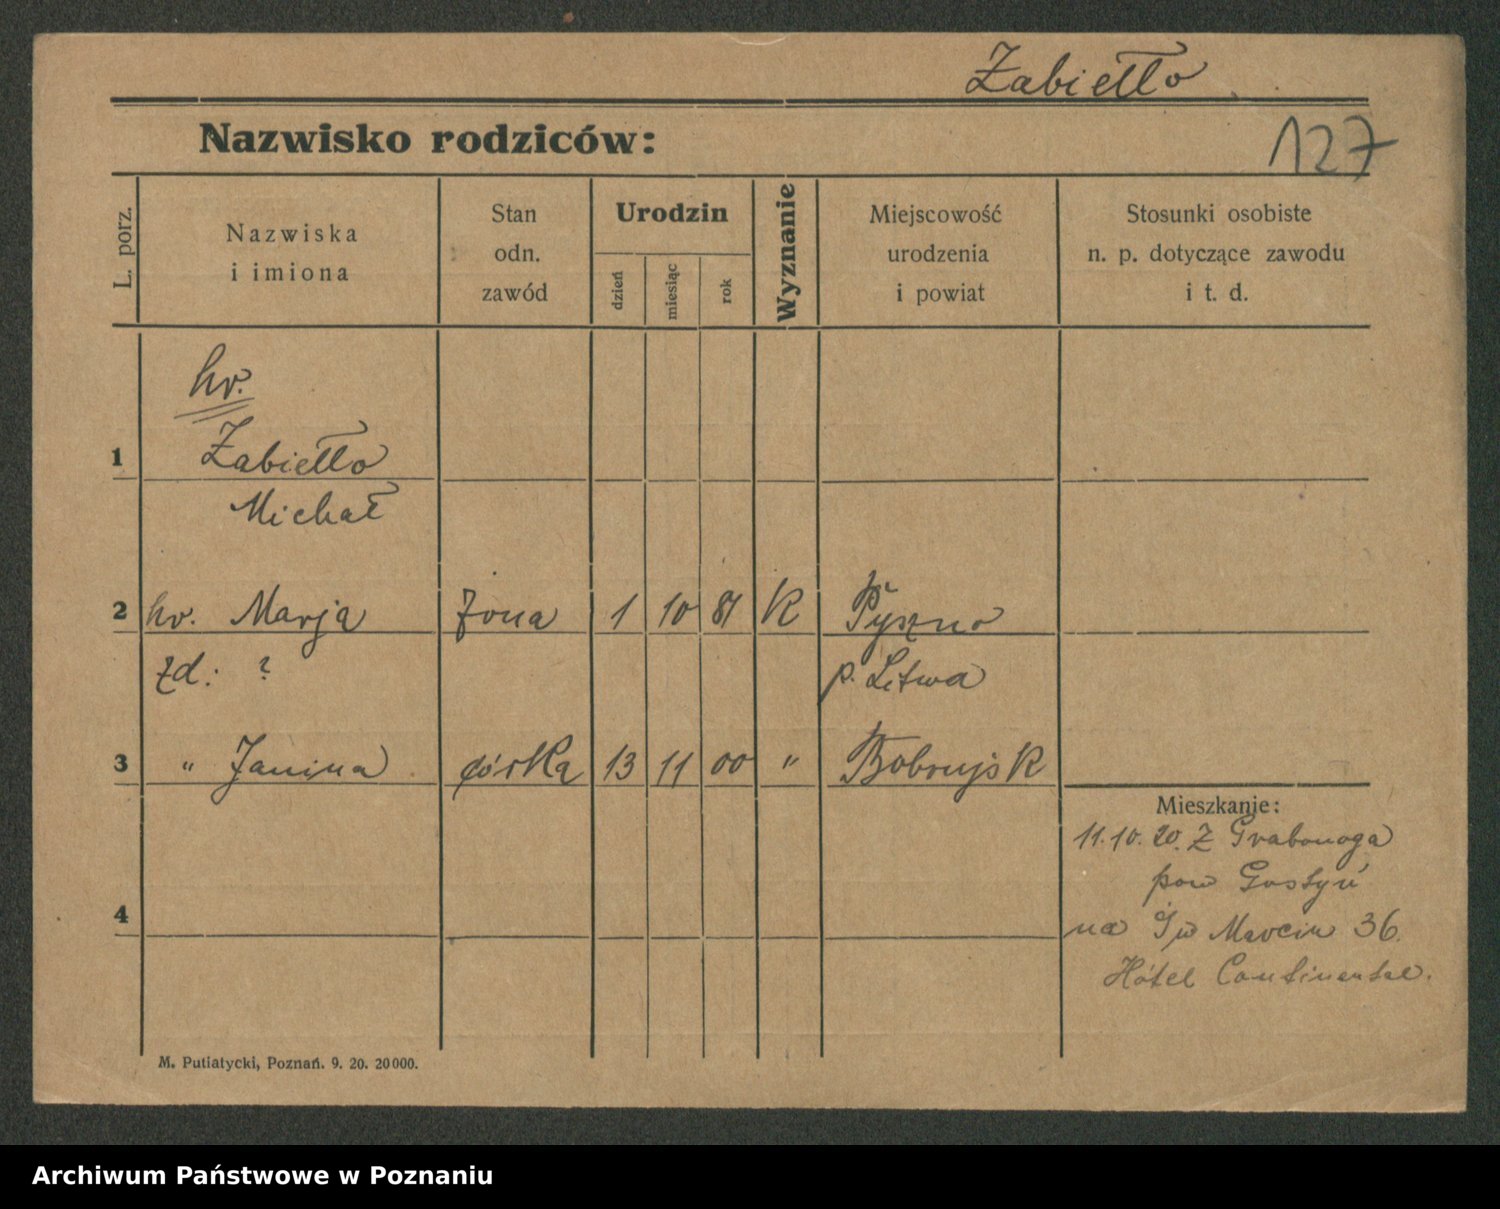 Zabiełło
Nazwisko rodziców:
127
L. porz.
Nazwiska
i imiona
Stan
odn.
zawód
Urodzin
dzień
miesiąc
rok
Wyznanie
Miejscowość
urodzenia
i powiat
Stosunki osobiste
n. p. dotyczące zawodu
i t. d.
hr.
1 Zabiełło
Michał
2 hr. Marja żona 1 10 81 K Pyszno
zd: ? p. Litwa
3 " Janina córka 13 11 00 " Bobrujsk
Mieszkanie:
11.10.20. Z Grabonoga
pow Gostyń
4
na Św Marcin 36.
Hôtel Continental.
M. Putiatycki, Poznań. 9. 20. 20000.
Archiwum Państwowe w Poznaniu